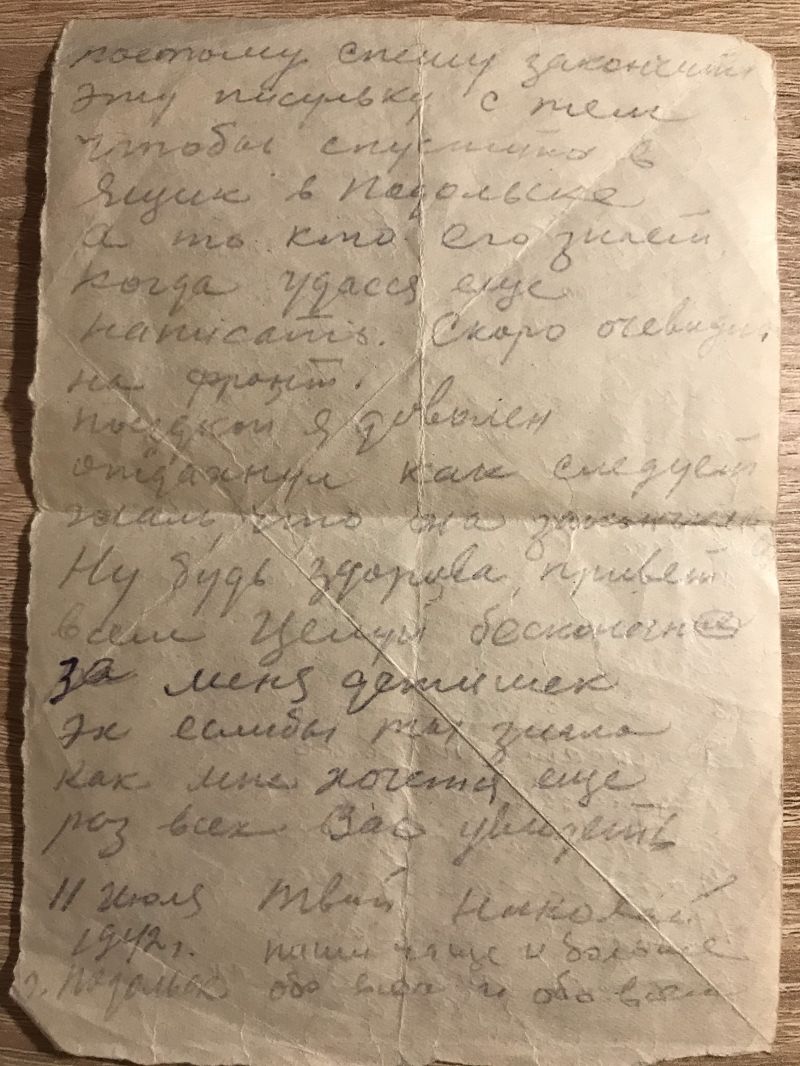 поетому спешу закончить
эту писульку с тем
чтобы спустить в
ящик в Подольске
а то кто его знает
когда удасся еще
написать. Скоро очевидно
на фронт.
поездкой я доволен
отдахнул как следует
жаль, что она закончилась
Ну будь здорова, привет
всем Целуй бесконечно
за меня детишек
эх еслибы ты знала
как мне хочется еще
раз всех Вас увидеть
11 июля Твой Николай
1942 г. пиши чаще и больше
г. Подольск обо всем и обо всем